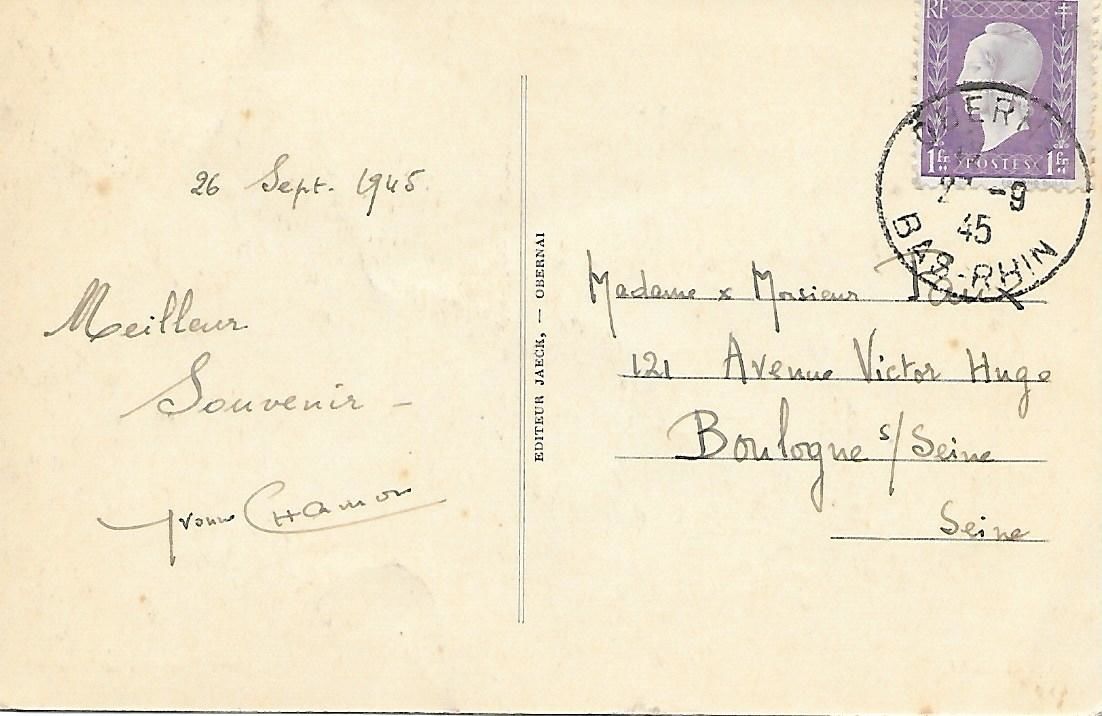 26 Sept. 1945
Meilleur
Souvenir –
Yvonne
EDITEUR JAECK, — OBERNAI
RF
1fr POSTES 1fr
-9
45
BAS-RHIN
Madame & Monsieur
121 Avenue Victor Hugo
Boulogne s/Seine
Seine